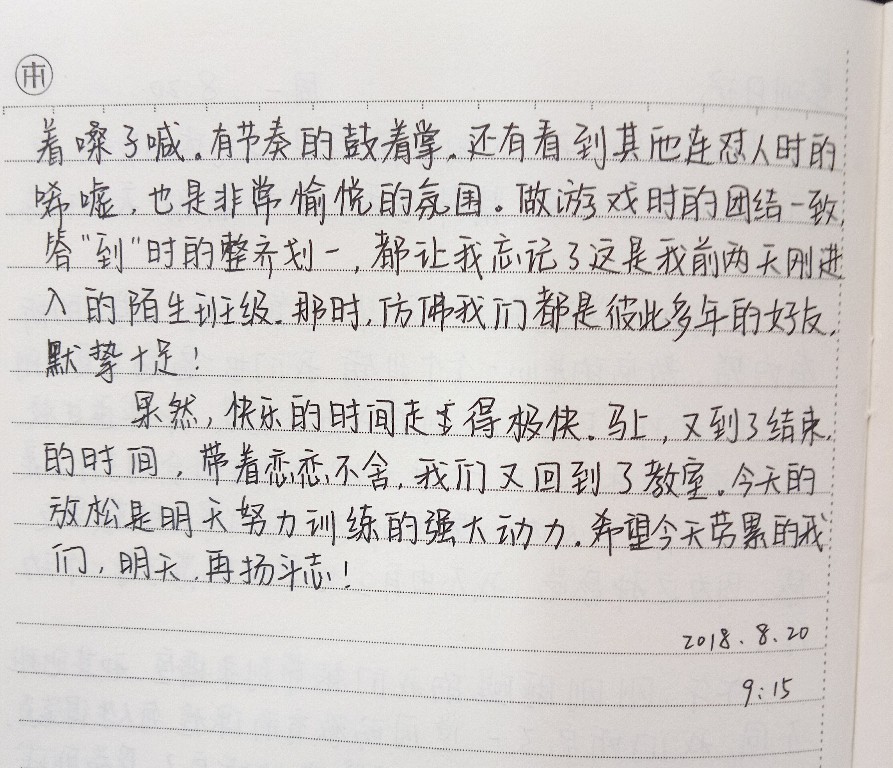 本
着嗓子喊。有节奏的鼓着掌。还有看到其他连怼人时的
唏嘘，也是非常愉悦的氛围。做游戏时的团结一致，
答"到"时的整齐划一，都让我忘记了这是我前两天刚进
入的陌生班级。那时，仿佛我们都是彼此多年的好友，
默挚十足！
果然，快乐的时间走得极快。马上，又到了结束
的时间，带着恋恋不舍，我们又回到了教室。今天的
放松是明天努力训练的强大动力。希望今天劳累的我
们，明天，再扬斗志！
2018.8.20
9:15